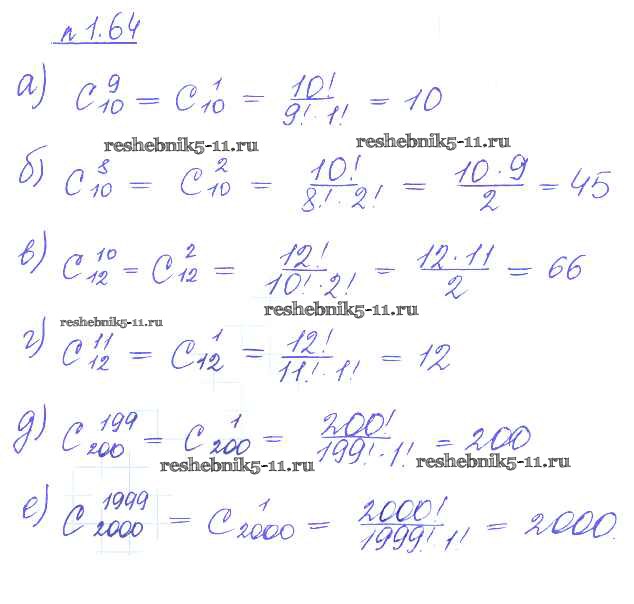 n 1.64
а) C₁₀⁹ = C₁₀¹ = 10!/(9!·1!) = 10
reshebnik5-11.ru reshebnik5-11.ru
б) C₁₀⁸ = C₁₀² = 10!/(8!·2!) = (10·9)/2 = 45
в) C₁₂¹⁰ = C₁₂² = 12!/(10!·2!) = (12·11)/2 = 66
reshebnik5-11.ru
reshebnik5-11.ru
г) C₁₂¹¹ = C₁₂¹ = 12!/(11!·1!) = 12
д) C₂₀₀¹⁹⁹ = C₂₀₀¹ = 200!/(199!·1!) = 200
reshebnik5-11.ru reshebnik5-11.ru
е) C₂₀₀₀¹⁹⁹⁹ = C₂₀₀₀¹ = 2000!/(1999!·1!) = 2000.